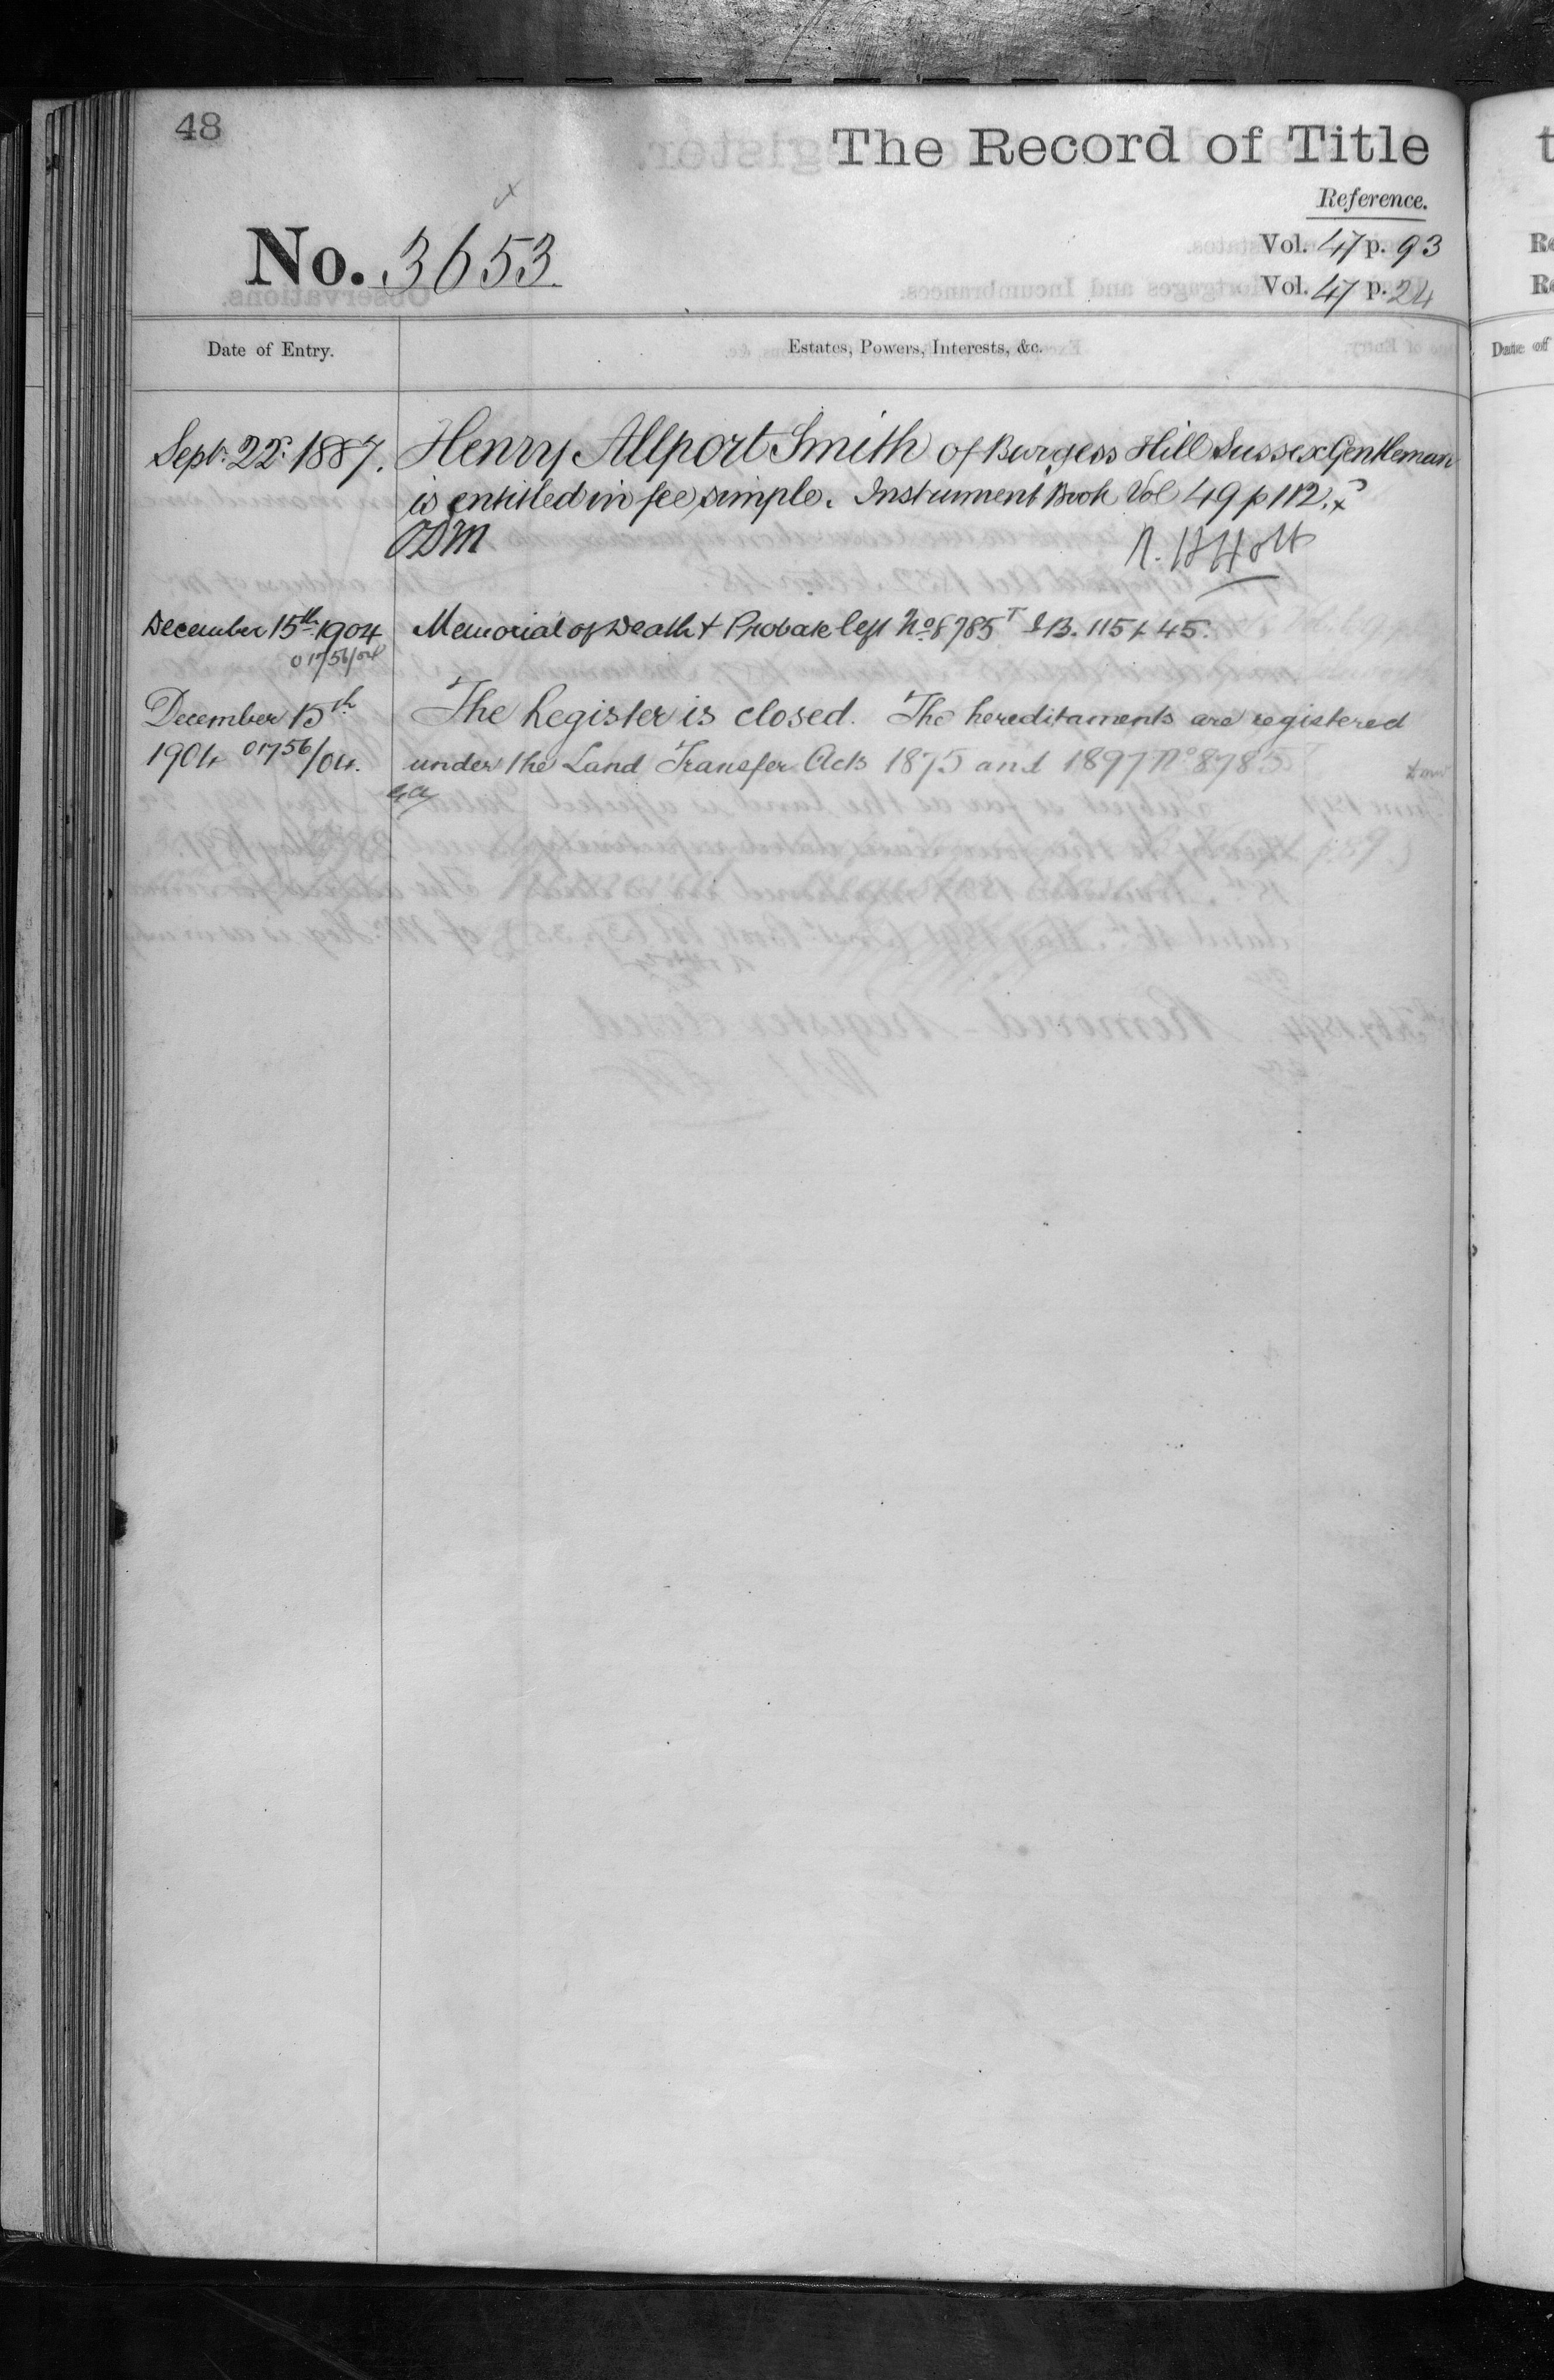 48
The Record of Title
Reference.
No. 3653.
Vol. 47 p. 93
Vol. 47 p. 24
Date of Entry.
Estates, Powers, Interests, &c.
Sept. 22. 1887.
Henry Allport Smith of Burgess Hill Sussex Gentleman
is entitled in fee simple. Instrument Book Vol 49 p 112.
December 15th 1904
01756/04
Memorial of Death & Probate left No 8785 I B. 115 & 45.
December 15th
1904 01756/04.
The Register is closed. The hereditaments are registered
under the Land Transfer Acts 1875 and 1897 No 8785